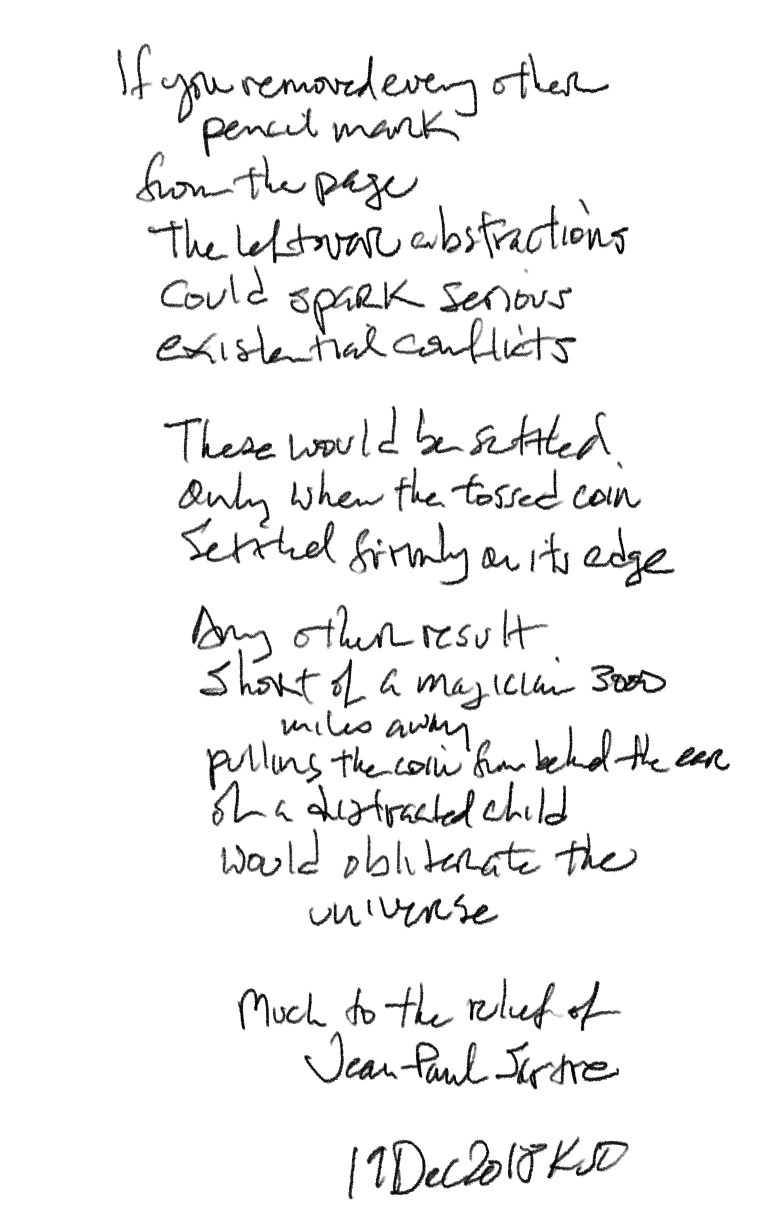 If you removed every other
pencil mark
from the page
The leftover abstractions
Could spark serious
existential conflicts
These would be settled
only when the tossed coin
Settled firmly on its edge
Any other result
Short of a magician 3000
miles away
pulling the coin from behind the ear
of a distracted child
would obliterate the
universe
Much to the relief of
Jean-Paul Sartre
19Dec2018 KSD